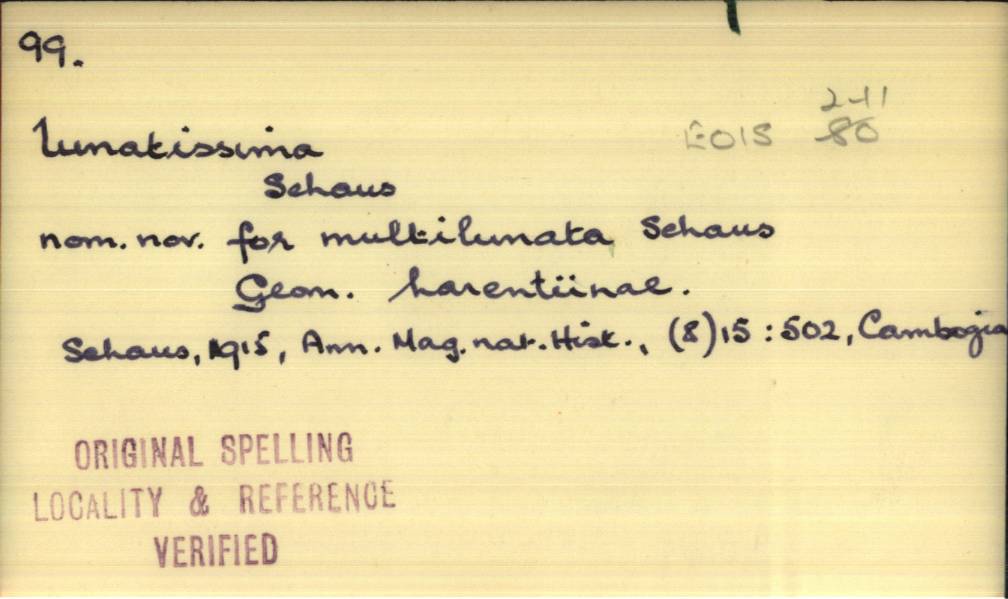 99.
2-11
EOIS 80
lunatissima
Schaus
nom. nov. for multilunata Schaus
Geom. Larentiinae.
Schaus, 1915, Ann. Mag. nat. Hist., (8)15:502, Cambogia
ORIGINAL SPELLING
LOCALITY & REFERENCE
VERIFIED